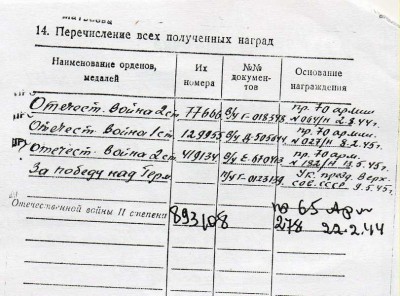 14. Перечисление всех полученных наград
Наименование орденов, медалей
Их номера
№№ документов
Основание награждения
Отечест. война 2 ст. 77666 О/к Г-018548 пр. 70 армии № 064/н 2.8.44 г.
Отечест. Война 1 ст. 129955 О/к Д-505644 пр. 70 армии. № 027/н 8.2.45 г.
Отечест. война 2 ст. 419134 О/к Е-670403 пр. 70 арм. № 182/н 19.5.45 г.
За победу над Герм. Ук. През. Верх. Сов. СССР 9.5.45 г.
Отечественной войны II степени 893108 пр 65 Арм
278 22.2.44